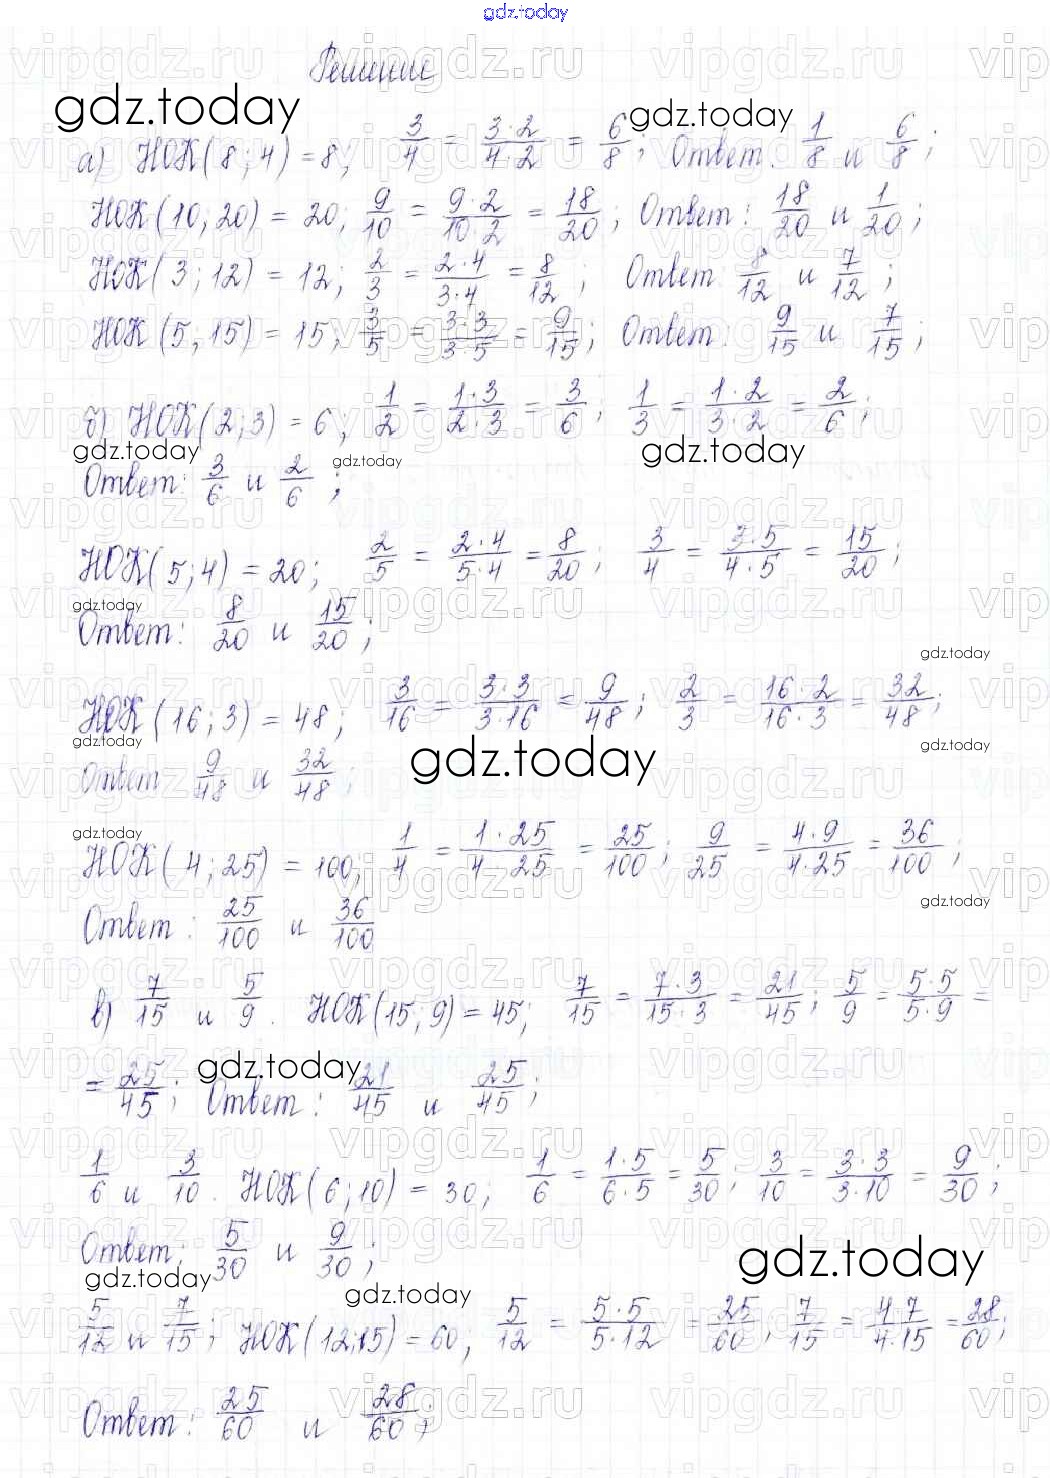 gdz.today
Решение
gdz.today
gdz.today
а) НОК(8; 4) = 8; 3/4 = 3·2/4·2 = 6/8; Ответ: 1/8 и 6/8;
НОК(10; 20) = 20; 9/10 = 9·2/10·2 = 18/20; Ответ: 18/20 и 1/20;
НОК(3; 12) = 12; 2/3 = 2·4/3·4 = 8/12; Ответ: 8/12 и 7/12;
НОК(5; 15) = 15; 3/5 = 3·3/3·5 = 9/15; Ответ: 9/15 и 7/15;
б) НОК(2; 3) = 6; 1/2 = 1·3/2·3 = 3/6; 1/3 = 1·2/3·2 = 2/6;
gdz.today
gdz.today
gdz.today
Ответ: 3/6 и 2/6;
НОК(5; 4) = 20; 2/5 = 2·4/5·4 = 8/20; 3/4 = 3·5/4·5 = 15/20;
gdz.today
Ответ: 8/20 и 15/20;
gdz.today
НОК(16; 3) = 48; 3/16 = 3·3/3·16 = 9/48; 2/3 = 16·2/16·3 = 32/48;
gdz.today
gdz.today
gdz.today
Ответ 9/48 и 32/48;
gdz.today
НОК(4; 25) = 100; 1/4 = 1·25/4·25 = 25/100; 9/25 = 4·9/4·25 = 36/100;
gdz.today
Ответ: 25/100 и 36/100
в) 7/15 и 5/9. НОК(15; 9) = 45; 7/15 = 7·3/15·3 = 21/45; 5/9 = 5·5/5·9 =
gdz.today
= 25/45; Ответ: 21/45 и 25/45;
1/6 и 3/10. НОК(6; 10) = 30; 1/6 = 1·5/6·5 = 5/30; 3/10 = 3·3/3·10 = 9/30;
Ответ: 5/30 и 9/30;
gdz.today
gdz.today
gdz.today
5/12 и 7/15; НОК(12; 15) = 60; 5/12 = 5·5/5·12 = 25/60, 7/15 = 4·7/4·15 = 28/60;
Ответ: 25/60 и 28/60;